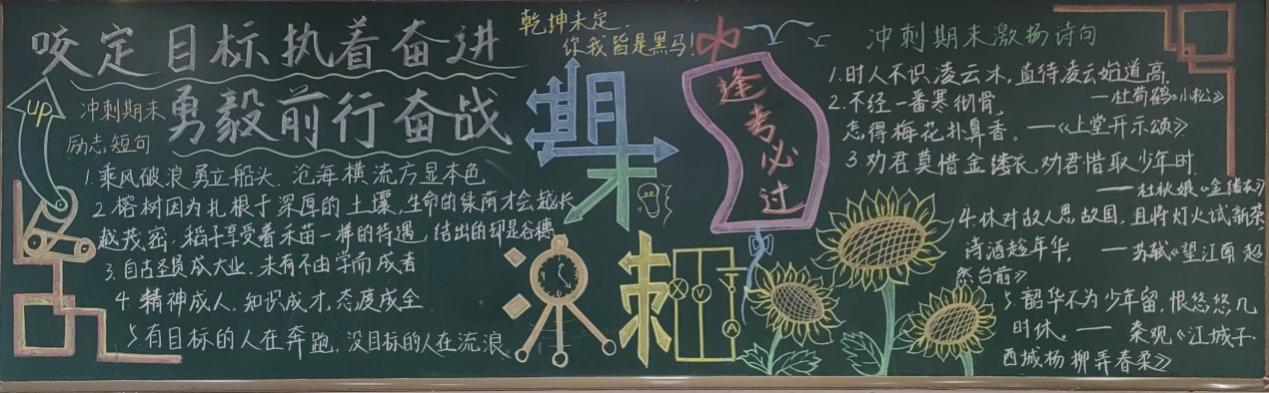 咬定目标执着奋进
勇毅前行奋战
乾坤未定
你我皆是黑马!
up
冲刺期末
励志短句
1.乘风破浪勇立船头.沧海横流方显本色
2.榕树因为扎根于深厚的土壤,生命的绿荫才会越长
越茂密.稻子享受着禾苗一样的待遇 结出的却是谷穗
3.自古圣贤成大业.未有不由学而成者
4.精神成人.知识成才,态度成全
5.有目标的人在奔跑,没目标的人在流浪.
期
末
冲刺
逢考必过
冲刺期末激扬诗句
1.时人不识凌云木,直待凌云始道高.
——杜荀鹤《小松》
2.不经一番寒彻骨,
怎得梅花扑鼻香.——《上堂开示颂》
3 劝君莫惜金缕衣,劝君惜取少年时.
——杜秋娘《金缕衣》
4.休对故人思故国,且将灯火试新茶
诗酒趁年华.——苏轼《望江南 超
然台前》
5.韶华不为少年留,恨悠悠几
时休.——秦观《江城子.
西城杨柳弄春柔》
V
A